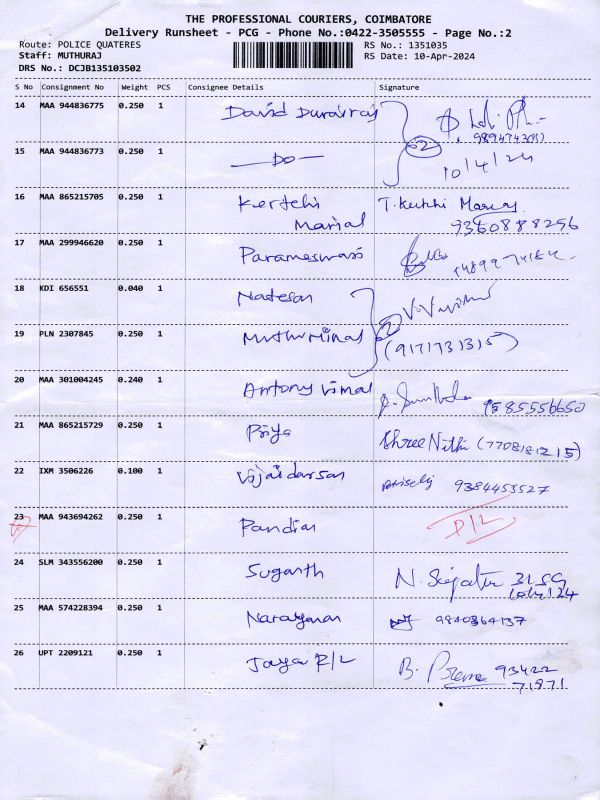 THE PROFESSIONAL COURIERS, COIMBATORE
Delivery Runsheet - PCG - Phone No.:0422-3505555 - Page No.:2
Route: POLICE QUATERES RS No.: 1351035
Staff: MUTHURAJ RS Date: 10-Apr-2024
DRS No.: DCJB135103502
S No Consignment No Weight PCS Consignee Details Signature
14 MAA 944836775 0.250 1 David Durairaj
15 MAA 944836773 0.250 1 —Do— 2 10/4/24
16 MAA 865215705 0.250 1 Kerthi T.
Marial 7360888296
17 MAA 299946620 0.250 1 Parameswari
18 KDI 656551 0.040 1 Natesan
19 PLN 2307845 0.250 1 2 (9171731315)
20 MAA 301004245 0.240 1 Antony Vimal 9585556650
21 MAA 865215729 0.250 1 Priya Shree Nithi (7708181215)
22 IXM 3506226 0.100 1 Vijaidarsan 9384455527
23 MAA 943694262 0.250 1 Pandian D/L
24 SLM 343556200 0.250 1 Suganth N.
25 MAA 574228394 0.250 1 Narayanan 9840364137
26 UPT 2209121 0.250 1 Jaya R/L B. Prema 93422
71871